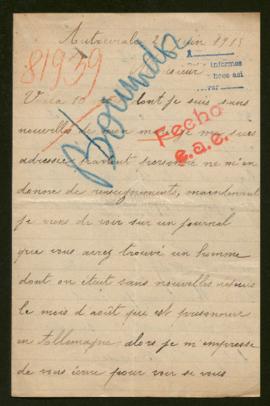 juin 1915
81939
informes
Monsieur
Voilà 10 dont je suis sans
nouvelles de mon je me suis
adressée partout personne ne m'en
donne de renseignements, maintenant
Fecho
e.a.e.
je viens de voir sur un journal
que vous avez trouvé un homme
dont on était sans nouvelles depuis
le mois d'août qui est prisonnier
en Allemagne alors je m'empresse
de vous écrire pour voir si vous